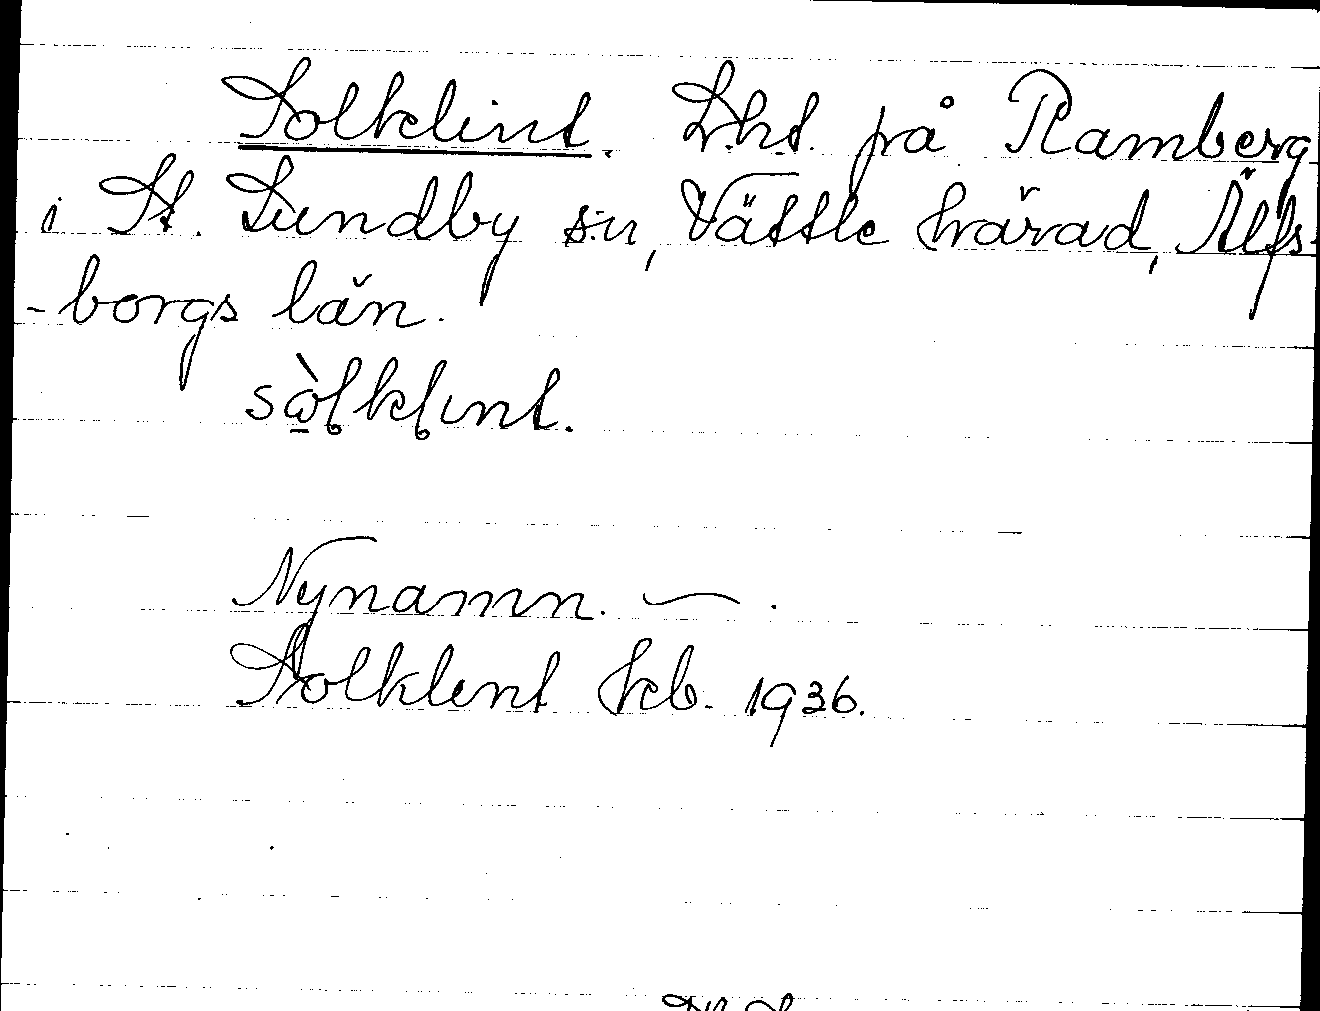 Solklint. Lht. på Ramberg
i St. Lundby sn, Vättle härad, Älfs-
-borgs län.
sòlklint.
Nynamn. —.
Solklint hkb. 1936.